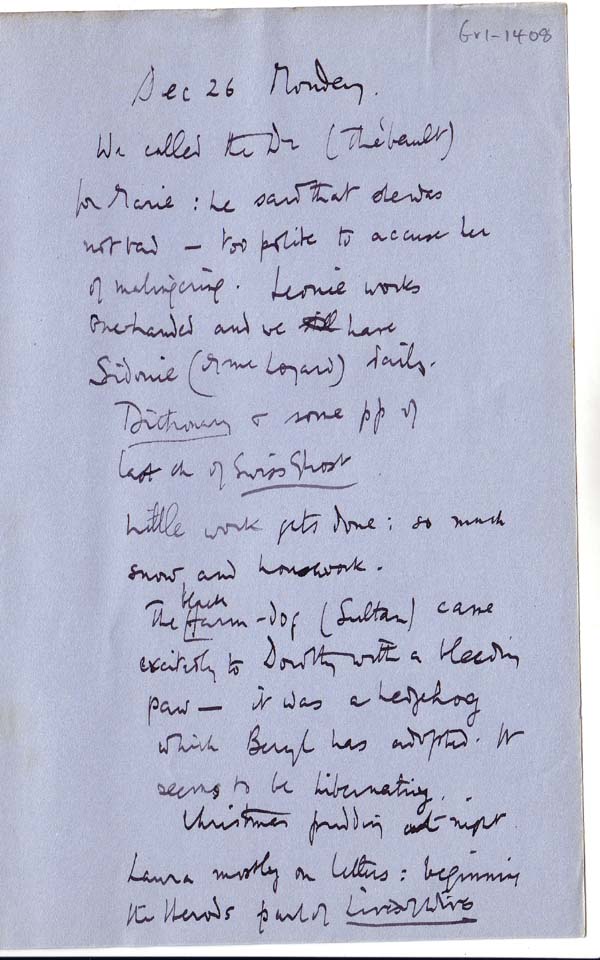 Gr1-1408
Dec 26 Monday.
We called the Dr (Thébault)
for Marie: he said that she was
not bad — too polite to accuse her
of malingering. Leonie works
one-handed and we have
Sidonie (Mme Lozard) daily.
Dictionary & some pp of
last ch of Swiss Ghost
Little work gets done: so much
snow and housework.
black
The farm-dog (Sultan) came
excitedly to Dorothy with a bleeding
paw — it was a hedgehog
which Beryl has adopted. It
seems to be hibernating.
Christmas pudding at night
Laura mostly on letters: beginning
the Herods part of Lives of Wives